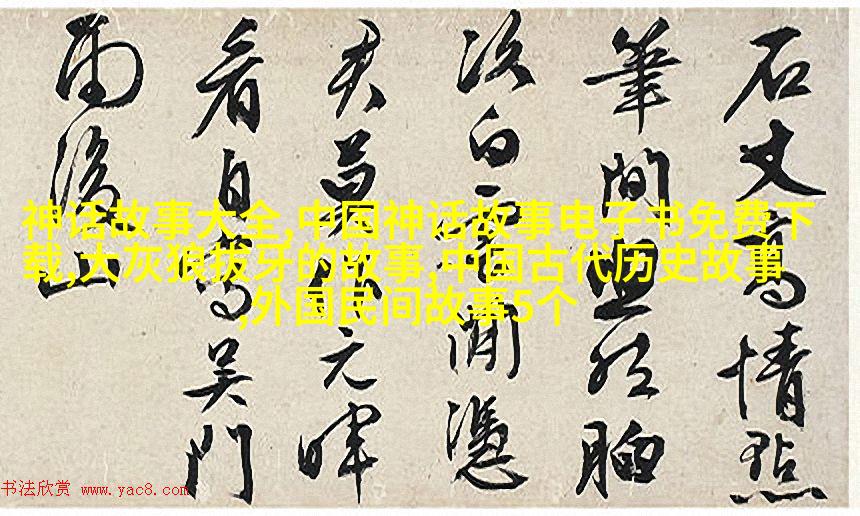 石丈高情點
筆間胸
次白雲閒憑
君莫作元暉
看自寫吳門
雨後山
神话故事大全,中国神话故事电子书免费下
载,大灰狼拔牙的故事,中国古代历史故事
,外国民间故事5个
书法欣赏 www.yac8.com